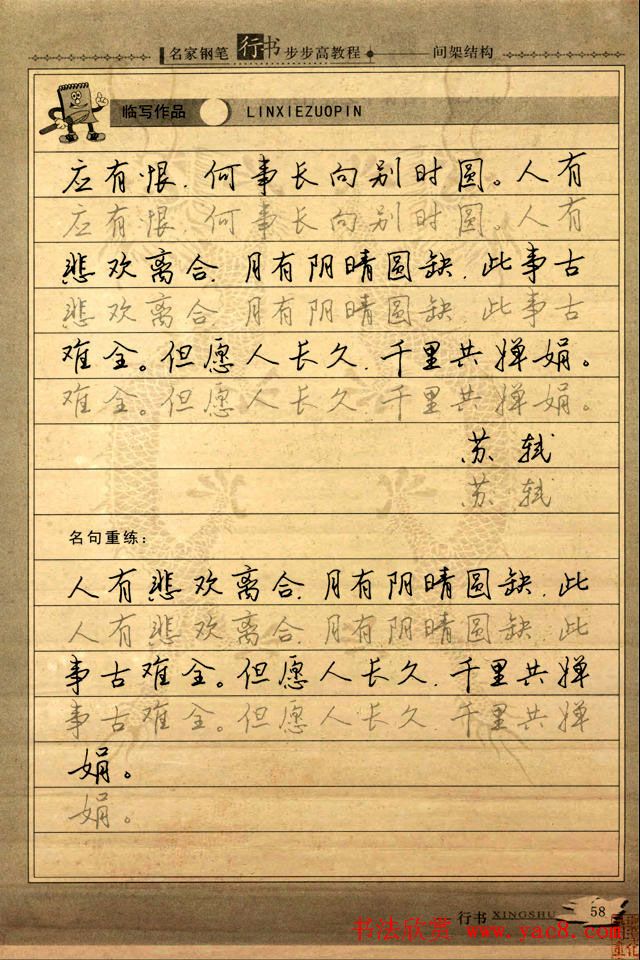 名家钢笔行书步步高教程 间架结构
临写作品 LINXIEZUOPIN
应有恨,何事长向别时圆。人有
应有恨,何事长向别时圆。人有
悲欢离合,月有阴晴圆缺,此事古
悲欢离合,月有阴晴圆缺,此事古
难全。但愿人长久,千里共婵娟。
难全。但愿人长久,千里共婵娟。
苏轼
苏轼
名句重练:
人有悲欢离合,月有阴晴圆缺,此
人有悲欢离合,月有阴晴圆缺,此
事古难全。但愿人长久,千里共婵
事古难全。但愿人长久,千里共婵
娟。
娟。
行书 XINGSHU 58
书法欣赏 www.yac8.com